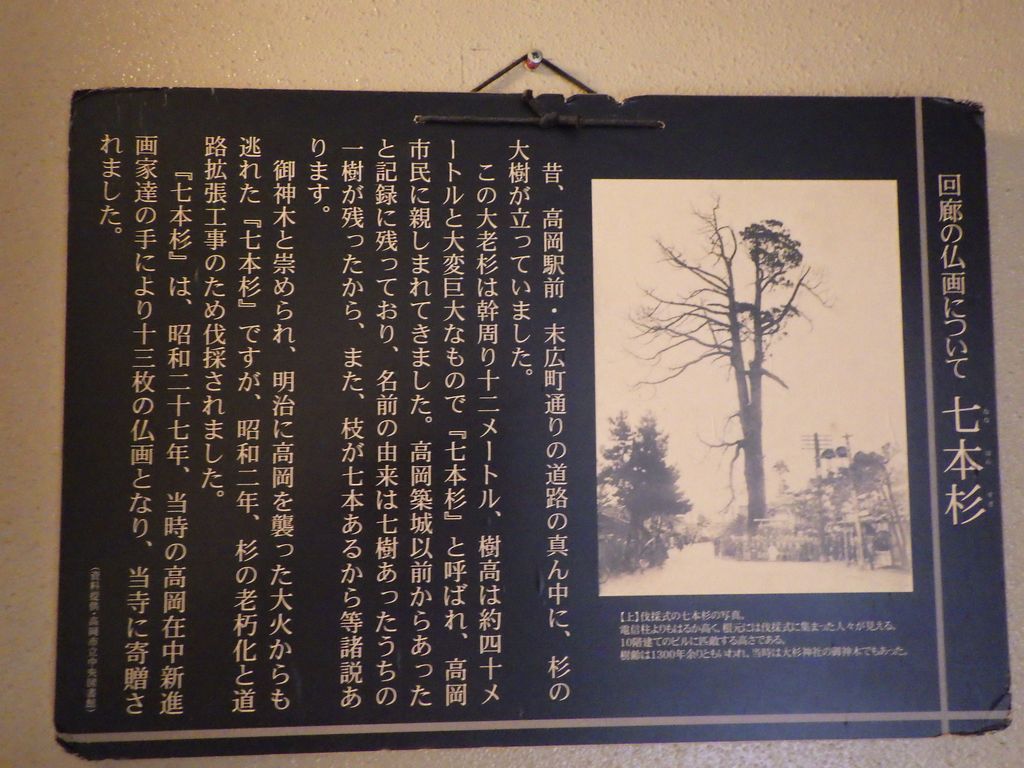 回廊の仏画について 七本杉
なな ほん すぎ
【上】伐採式の七本杉の写真。
電信柱よりもはるか高く、根元には伐採式に集まった人々が見える。
10階建てのビルに匹敵する高さである。
樹齢は1300年余りともいわれ、当時は大杉神社の御神木でもあった。
昔、高岡駅前・末広町通りの道路の真ん中に、杉の
大樹が立っていました。
この大老杉は幹周り十二メートル、樹高は約四十メ
ートルと大変巨大なもので『七本杉』と呼ばれ、高岡
市民に親しまれてきました。高岡築城以前からあった
と記録に残っており、名前の由来は七樹あったうちの
一樹が残ったから、また、枝が七本あるから等諸説あ
ります。
御神木と崇められ、明治に高岡を襲った大火からも
逃れた『七本杉』ですが、昭和二年、杉の老朽化と道
路拡張工事のため伐採されました。
『七本杉』は、昭和二十七年、当時の高岡在中新進
画家達の手により十三枚の仏画となり、当寺に寄贈さ
れました。
（資料提供・高岡市立中央図書館）